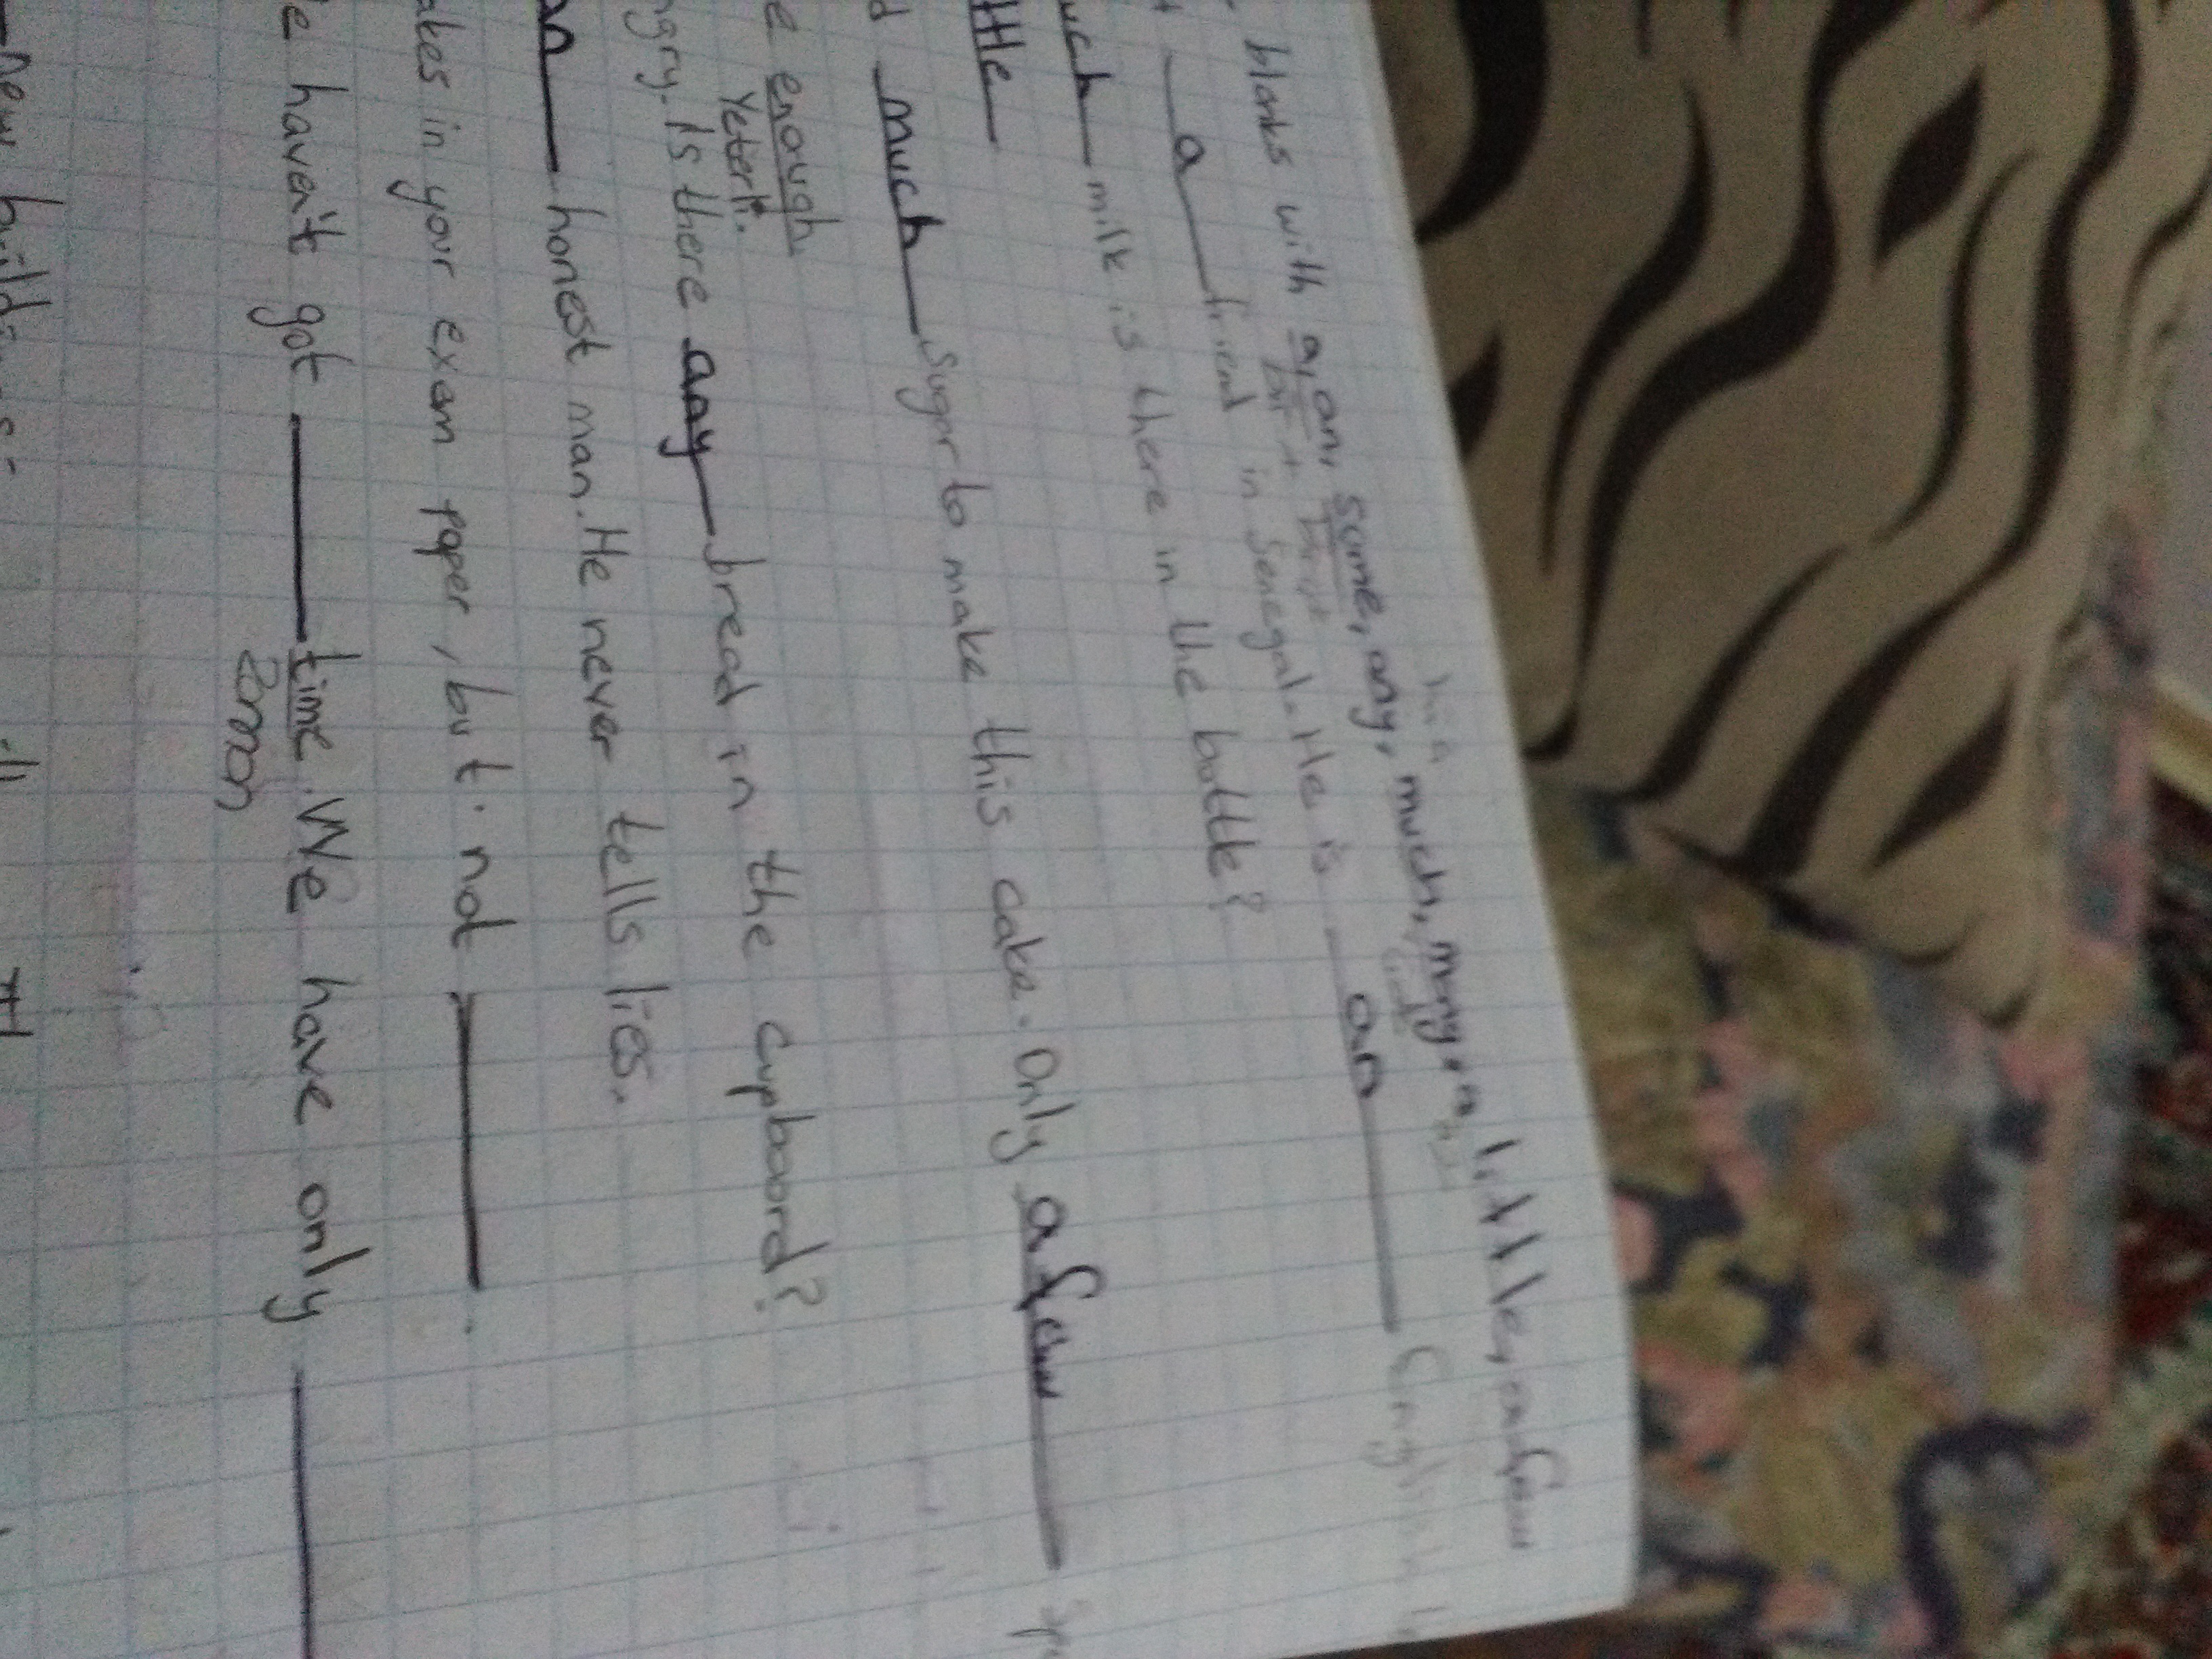 blanks with a, an, some, any, much, many, a little, a few
bir
a friend in Senegal. He is an English
much milk is there in the bottle?
ttle
d much sugar to make this cake. Only a few
e enough
Yeterli.
ngry. Is there any bread in the cupboard?
an honest man. He never tells lies.
akes in your exam paper, but not ______.
e haven't got ______ time. We have only ______
Zaman
new buildings